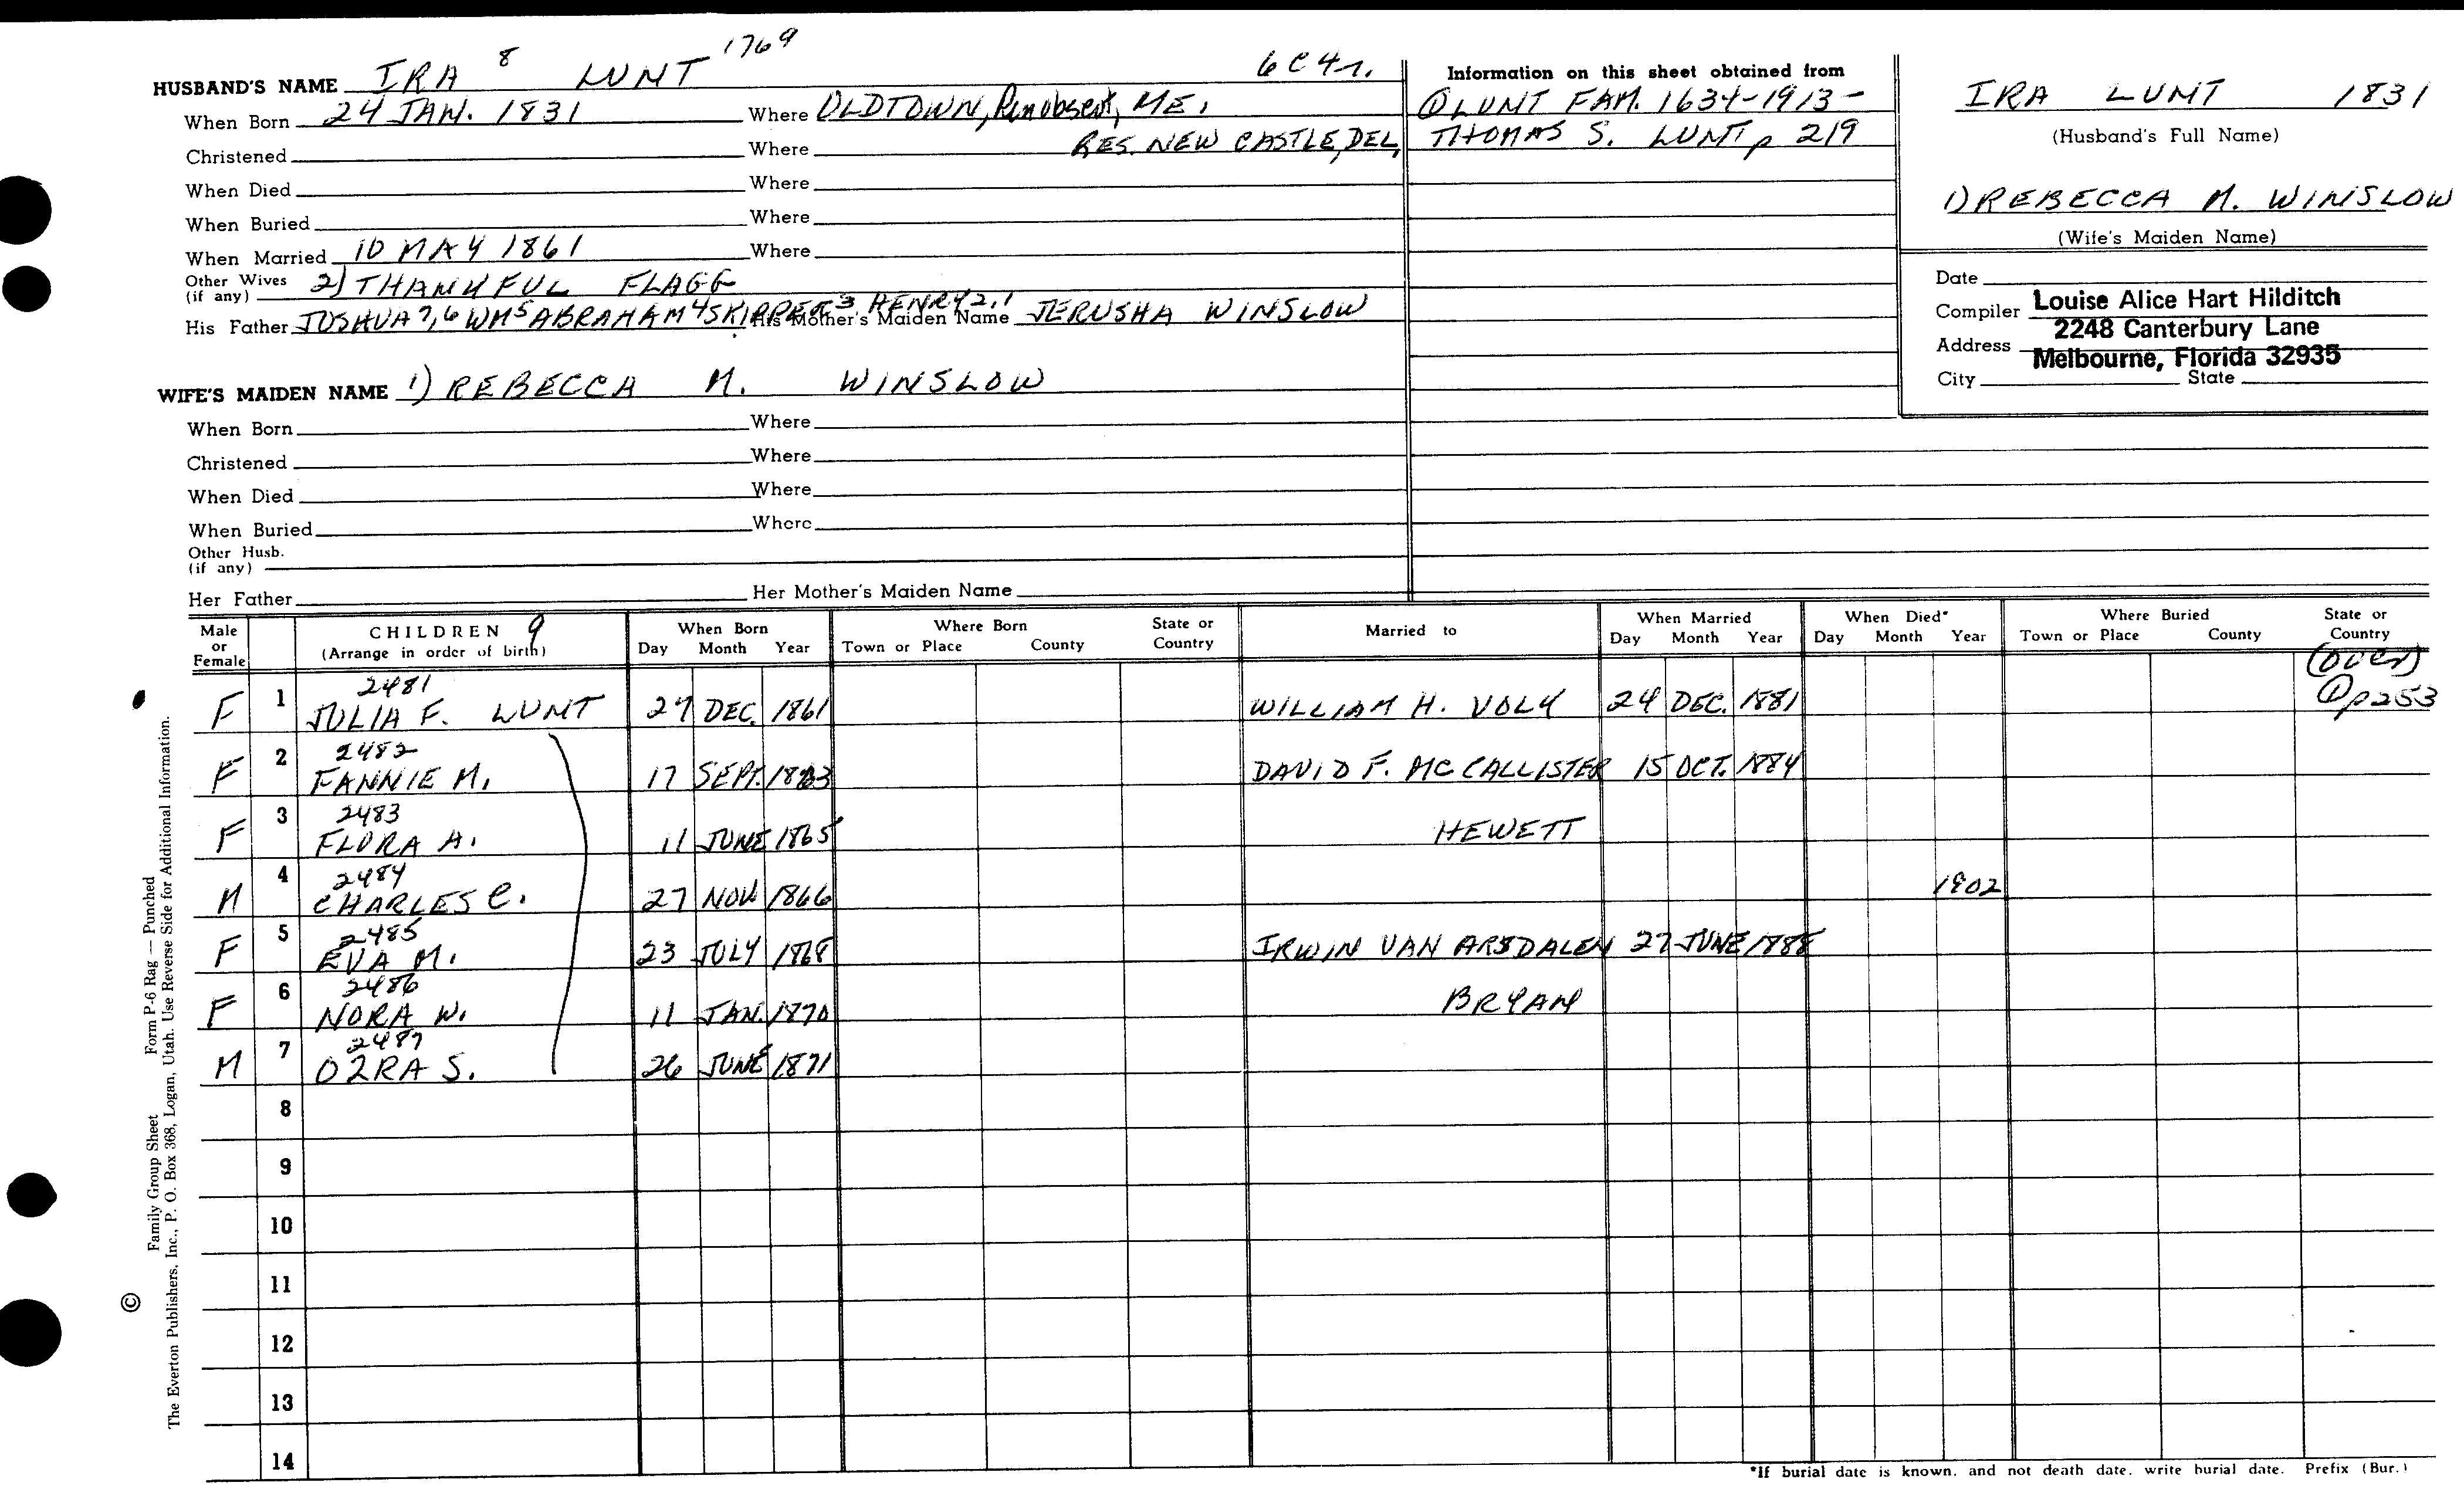 HUSBAND'S NAME IRA 8 LUNT 1769 6C4r.
When Born 24 JAN. 1831 Where OLDTOWN, Penobscot, ME.
Christened Where RES. NEW CASTLE, DEL,
When Died Where
When Buried Where
When Married 10 MAY 1861 Where
Other Wives (if any) 2) THANKFUL FLAGG
His Father JOSHUA 7,6 WM 5 ABRAHAM 4 SKIPPER 3 HENRY 2,1 His Mother's Maiden Name JERUSHA WINSLOW
WIFE'S MAIDEN NAME 1) REBECCA M. WINSLOW
When Born Where
Christened Where
When Died Where
When Buried Where
Other Husb.
(if any)
Her Father Her Mother's Maiden Name
Information on this sheet obtained from
① LUNT FAM. 1634-1913-
THOMAS S. LUNT p 219
IRA LUNT 1831
(Husband's Full Name)
1) REBECCA M. WINSLOW
(Wife's Maiden Name)
Date
Compiler Louise Alice Hart Hilditch
Address 2248 Canterbury Lane
Melbourne, Florida 32935
City State
Male or Female CHILDREN 9 (Arrange in order of birth) When Born Day Month Year Where Born Town or Place County State or Country Married to When Married Day Month Year When Died* Day Month Year Where Buried Town or Place County State or Country
(over)
① p253
F 1 2481 JULIA F. LUNT 27 DEC. 1861 WILLIAM H. VOLY 24 DEC. 1881
F 2 2482 FANNIE M. 17 SEPT. 1863 DAVID F. MCCALLISTER 15 OCT. 1884
F 3 2483 FLORA A. 11 JUNE 1865 HEWETT
M 4 2484 CHARLES C. 27 NOV. 1866 1902
F 5 2485 EVA M. 23 JULY 1868 IRWIN VAN ARSDALEN 27 JUNE 1888
F 6 2486 NORA W. 11 JAN. 1870 BRYAN
M 7 2487 OZRA S. 26 JUNE 1871
8
9
10
11
12
13
14
*If burial date is known, and not death date, write burial date. Prefix (Bur.)
© Family Group Sheet Form P-6 Rag — Punched
The Everton Publishers, Inc., P. O. Box 368, Logan, Utah. Use Reverse Side for Additional Information.